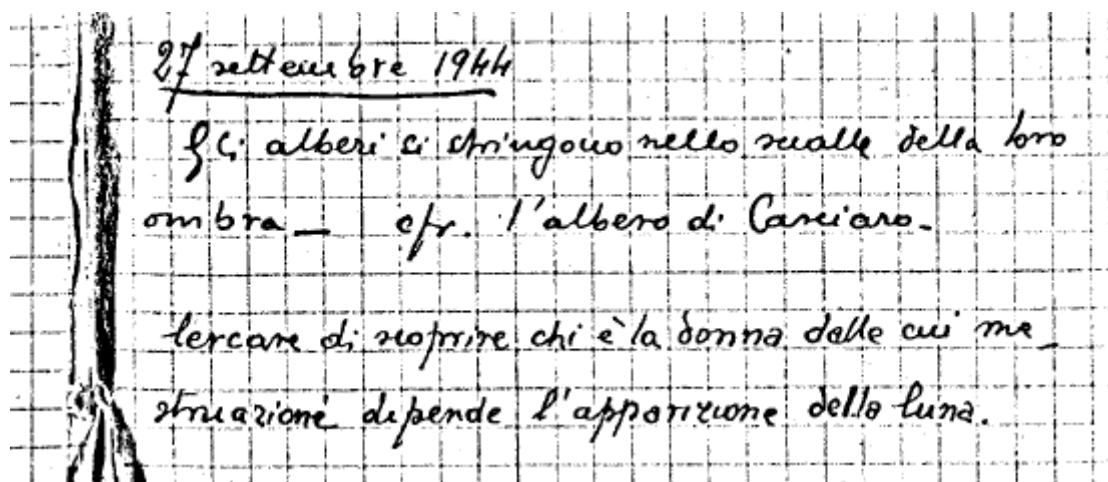 27 settembre 1944
Gli alberi si stringono nello scialle della loro
ombra — cfr. l'albero di Casciaro.
Cercare di scoprire chi è la donna dalle cui me_
struazioni dipende l'apparizione della luna.